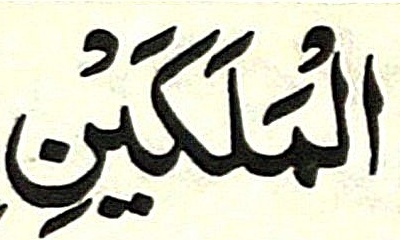 الْمَلَكَيْنِ